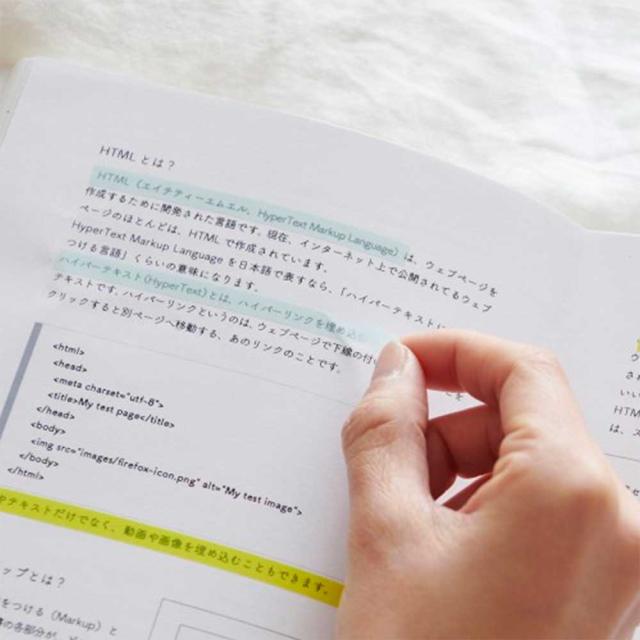 HTML とは？
HTML（エイチティーエムエル、HyperText Markup Language）は、ウェブページを
作成するために開発された言語です。現在、インターネット上で公開されてるウェブ
ページのほとんどは、HTML で作成されています。
HyperText Markup Language を日本語で表すなら、「ハイパーテキストに
つける言語」くらいの意味になります。
ハイパーテキスト(HyperText)とは、ハイパーリンクを埋め込む
テキストです。ハイパーリンクというのは、ウェブページで下線の付
クリックすると別ページへ移動する、あのリンクのことです。
<html>
<head>
<meta charset="utf-8">
<title>My test page</title>
</head>
<body>
<img src="images/firefox-icon.png" alt="My test image">
</body>
</html>
やテキストだけでなく、動画や画像を埋め込むこともできます。
ップとは？
をつける（Markup）と
の各部分が、
HTM
は、ス